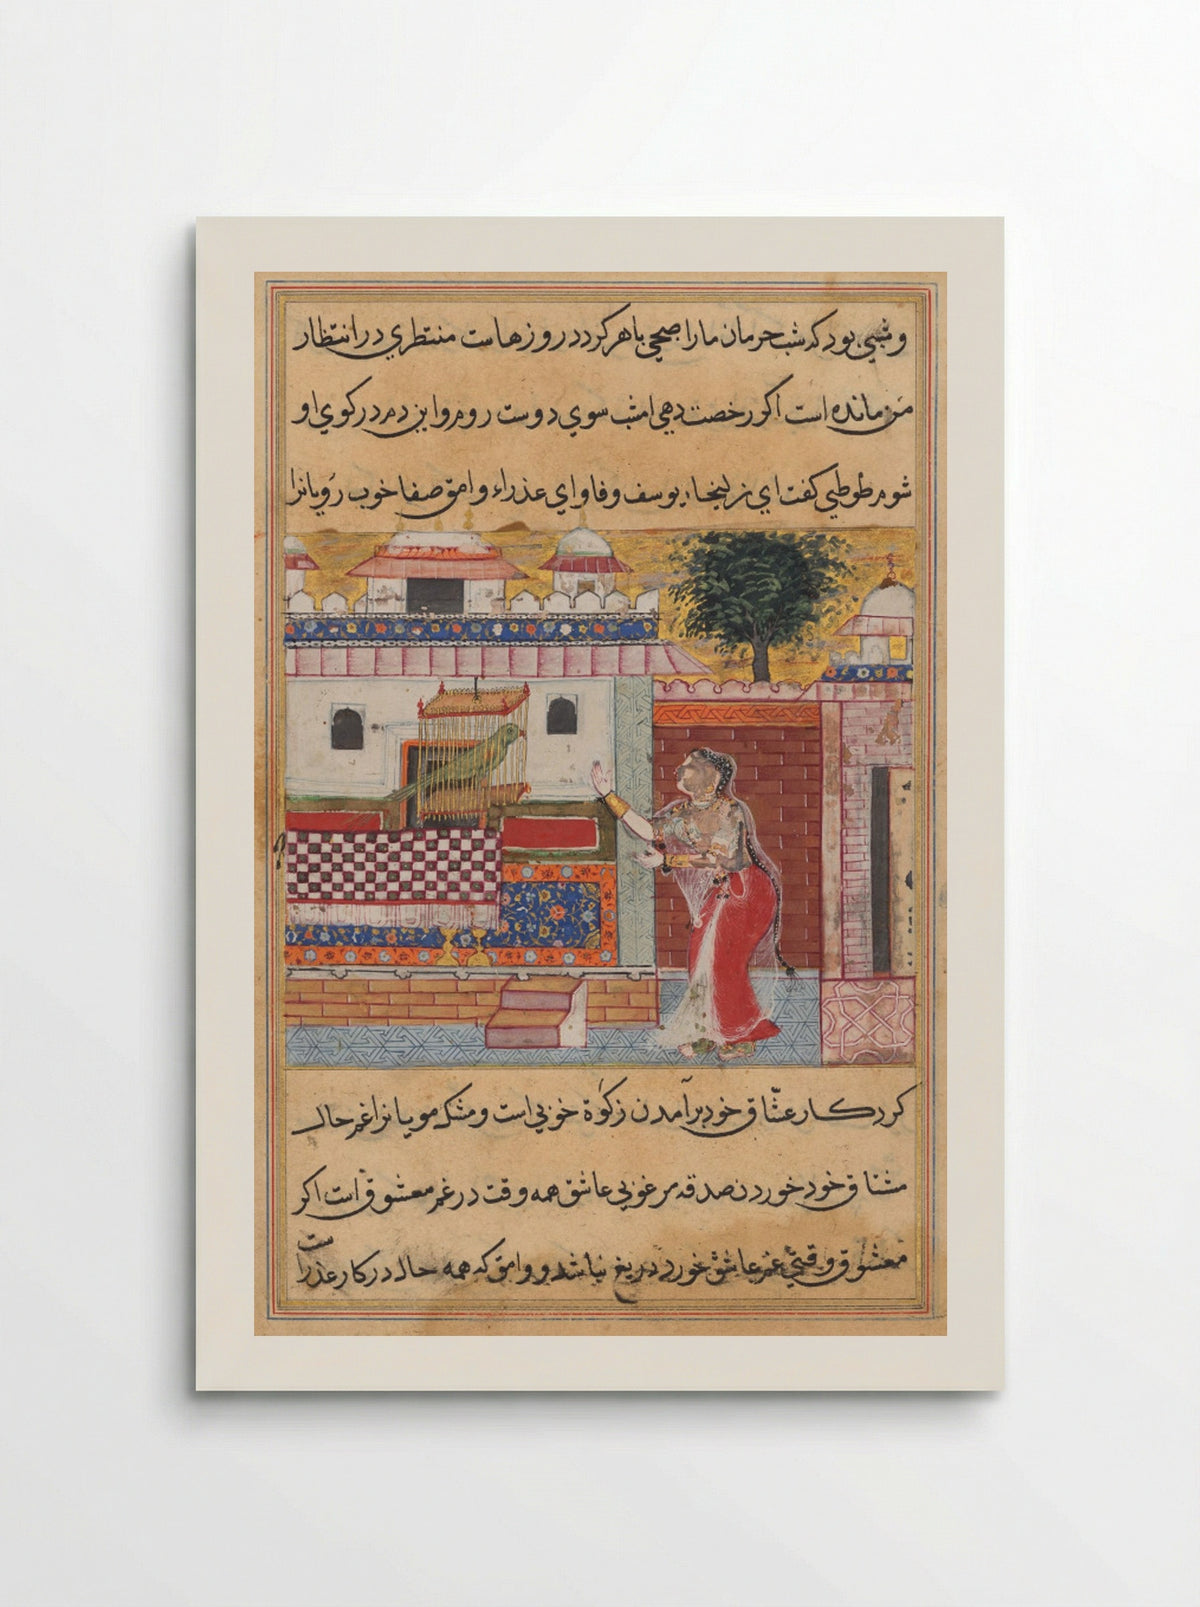 و شبي بود که شب حرمان ما را صبحي باهر کردد روزهاست منتظري در انتظار
من مانده است اکر رخصت دهي امشب سوي دوست روم و اين دم در کوي او
شوم طوطي کفت اي زليخاء يوسف وفا و اي عذراء وامق صفا خوب رويانرا
کرد کار عشاق خود برآمدن زکوٰة خوبي است و مشک مويانرا غم حال
مشتاق خود خوردن صدقه مرغوبي عاشق همه وقت در غم معشوق است اکر
معشوق وقتي غم عاشق خورد دريغ نباشد و وامق که همه حال در کار عذراست